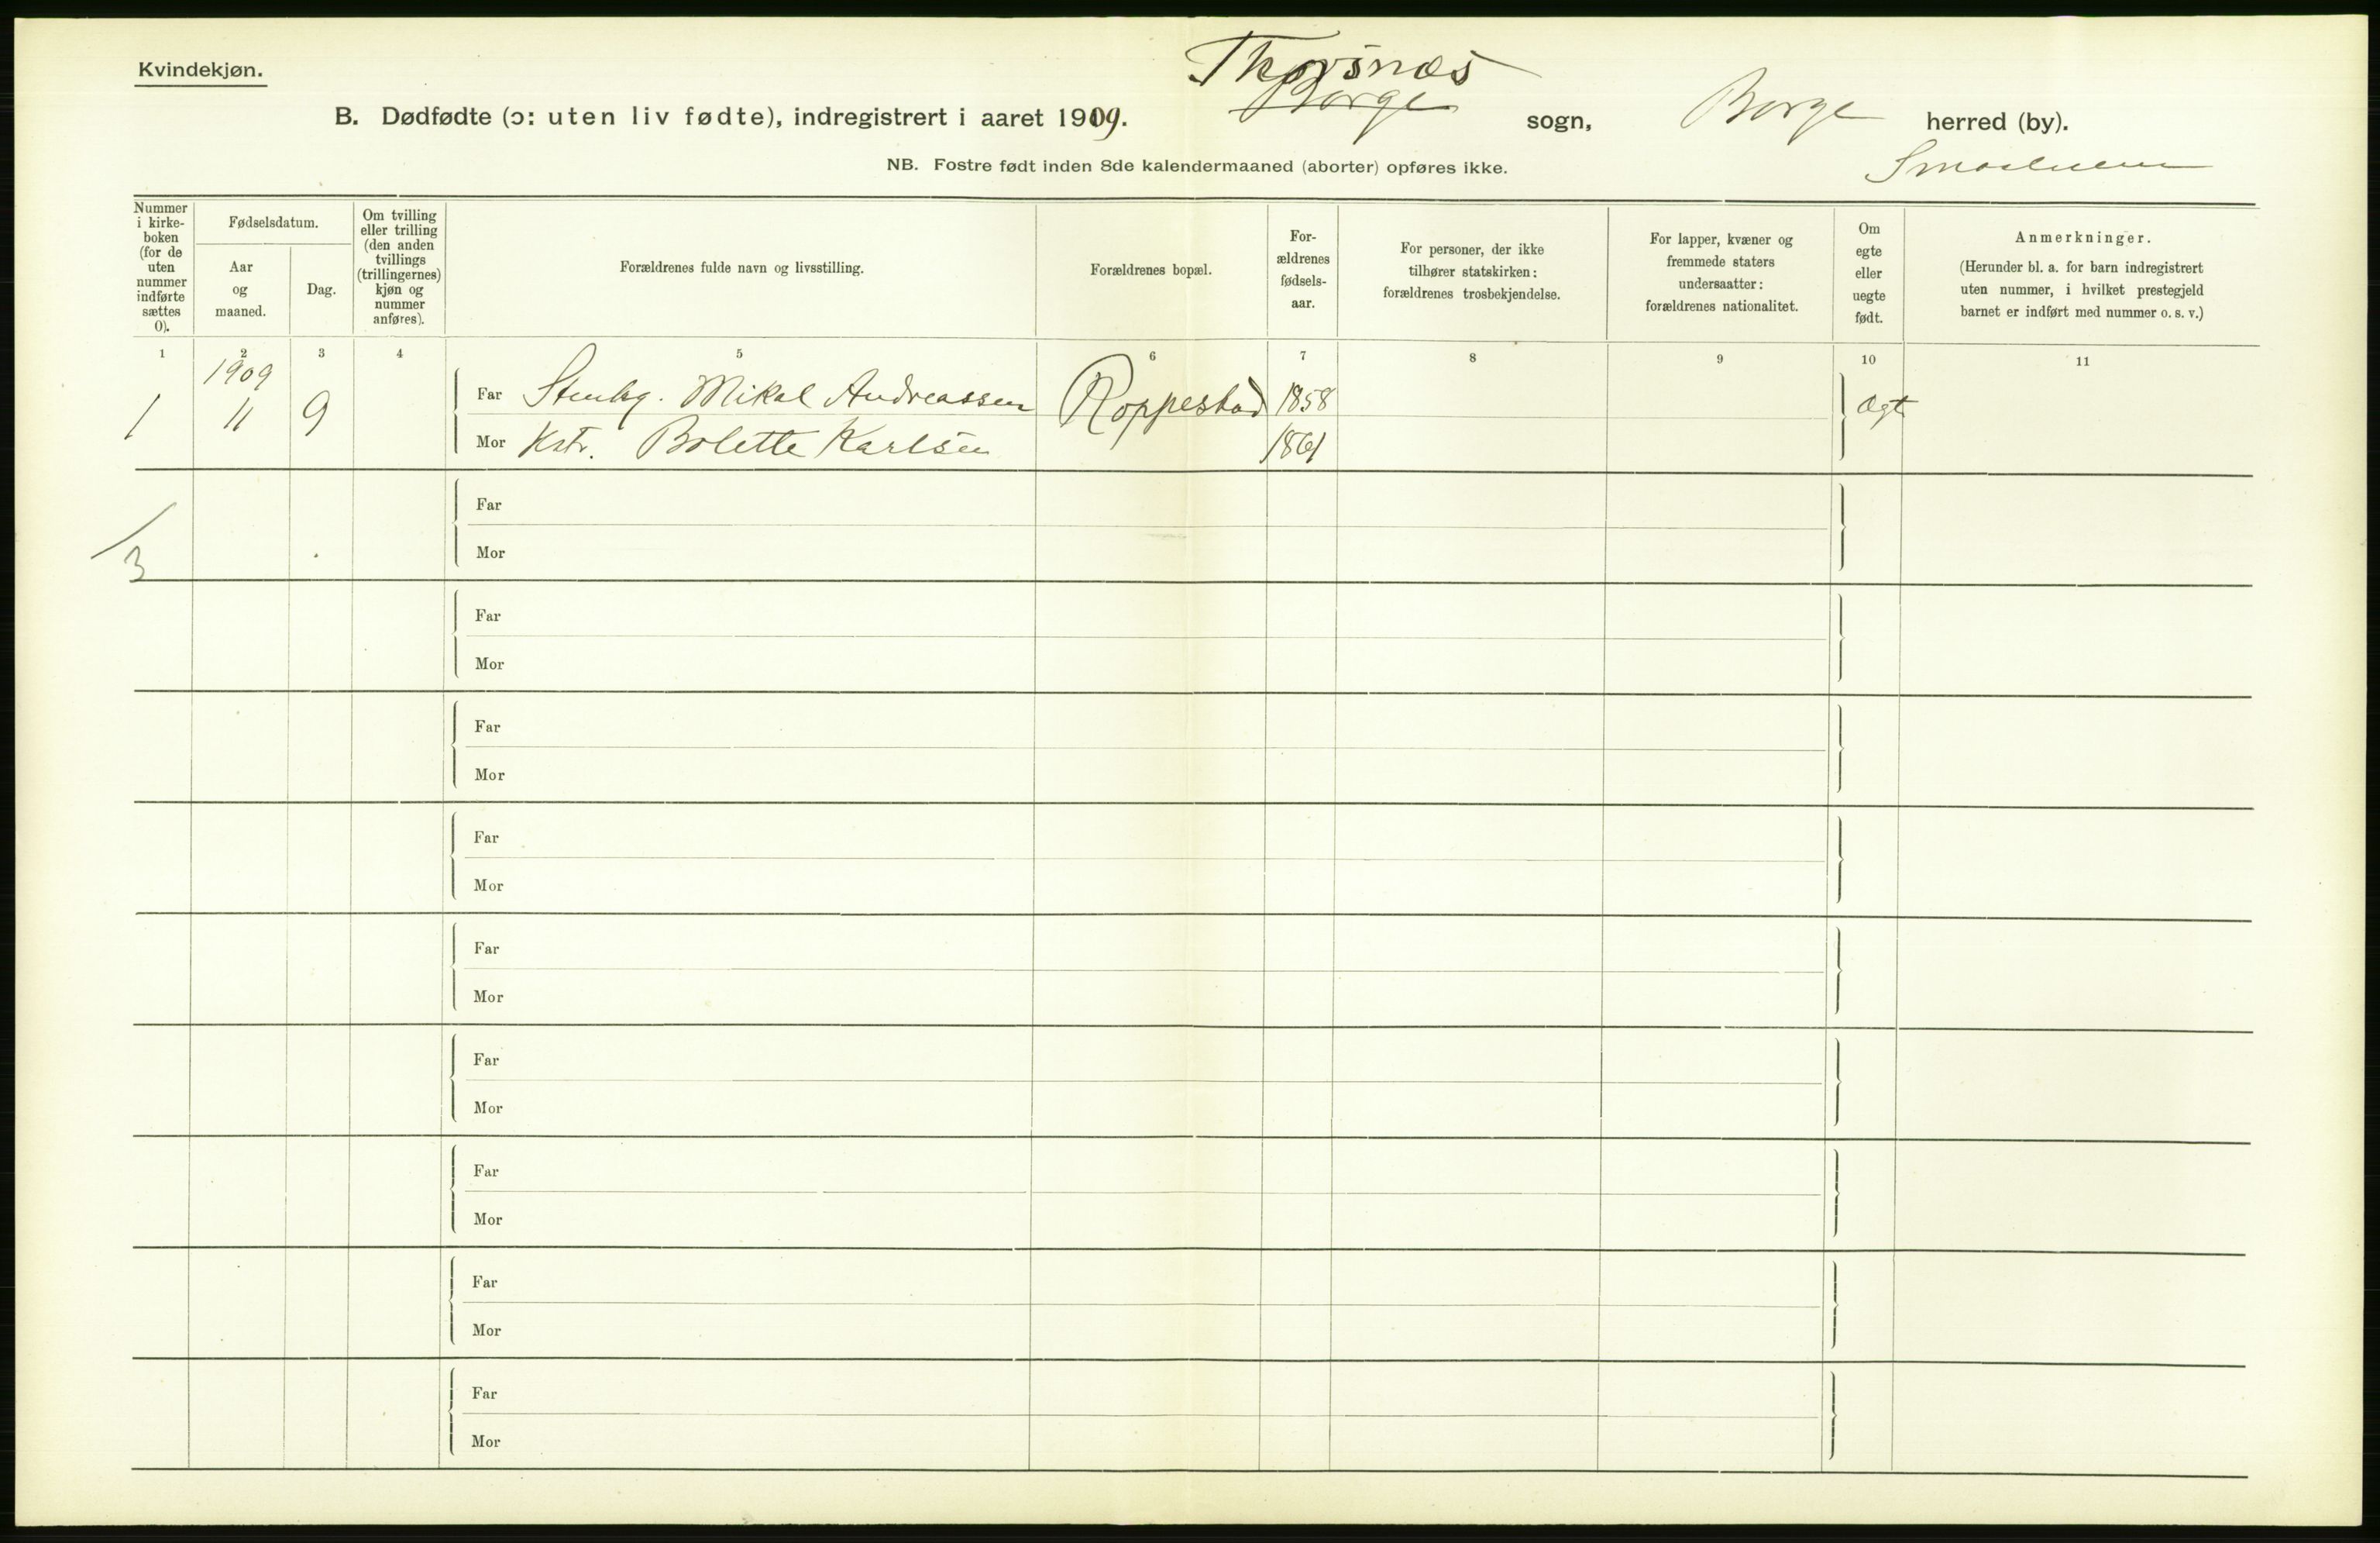 Kvindekjøn.
Thorsnæs
B. Dødfødte (ɔ: uten liv fødte), indregistrert i aaret 1909. Borge sogn, Borge herred (by).
NB. Fostre født inden 8de kalendermaaned (aborter) opføres ikke.
Smaalenene
Nummer
i kirke-
boken
(for de
uten
nummer
indførte
sættes
0).
Fødselsdatum.
Aar
og
maaned.
Dag.
Om tvilling
eller trilling
(den anden
tvillings
(trillingernes)
kjøn og
nummer
anføres).
Forældrenes fulde navn og livsstilling.
Forældrenes bopæl.
For-
ældrenes
fødsels-
aar.
For personer, der ikke
tilhører statskirken:
forældrenes trosbekjendelse.
For lapper, kvæner og
fremmede staters
undersaatter:
forældrenes nationalitet.
Om
egte
eller
uegte
født.
Anmerkninger.
(Herunder bl. a. for barn indregistrert
uten nummer, i hvilket prestegjeld
barnet er indført med nummer o. s. v.)
1 2 3 4 5 6 7 8 9 10 11
1909
1 11 9 Far Stenhg. Mikal Andreassen Roppestad 1858 Ægt
Mor Kstr. Bolette Karlsen 1861
Far
3 Mor
Far
Mor
Far
Mor
Far
Mor
Far
Mor
Far
Mor
Far
Mor
Far
Mor
Far
Mor